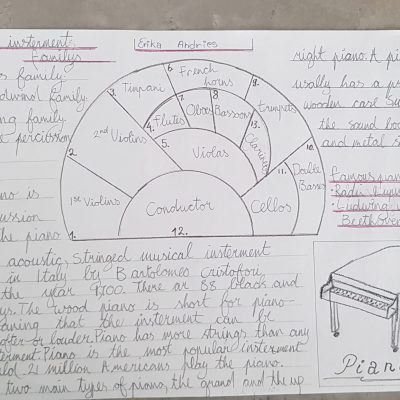 insterment
Familys
Erika Andries
s family
odwind family
ng family
e percussion
no is
ussion
the piano
1.
1st Violins
2.
2nd Violins
3.
Timpani
4.
Flutes
5.
Violas
6.
French
horns
7.
Oboes
8
Bassoons
9.
trumpets
10.
11.
Double
Basses
12.
Conductor
13.
Clarinets
Cellos
right piano. A pi
usally has a pr
wooden case su
the sound boa
and metal s
Famous pian
Ludwing v
Beethoven
acoustic, Stringed musical insterment
in Italy by Bartolomeo Cristofori,
the year 1700. There ar 88 black and
ys. The word piano is short for piano-
aning that the insterment can be
ofter or louder. Piano has more strings than any
terment. Piano is the most popular insterment
ld. 21 million Americans play the piano.
two main types of piano, the grand and the up
Pian